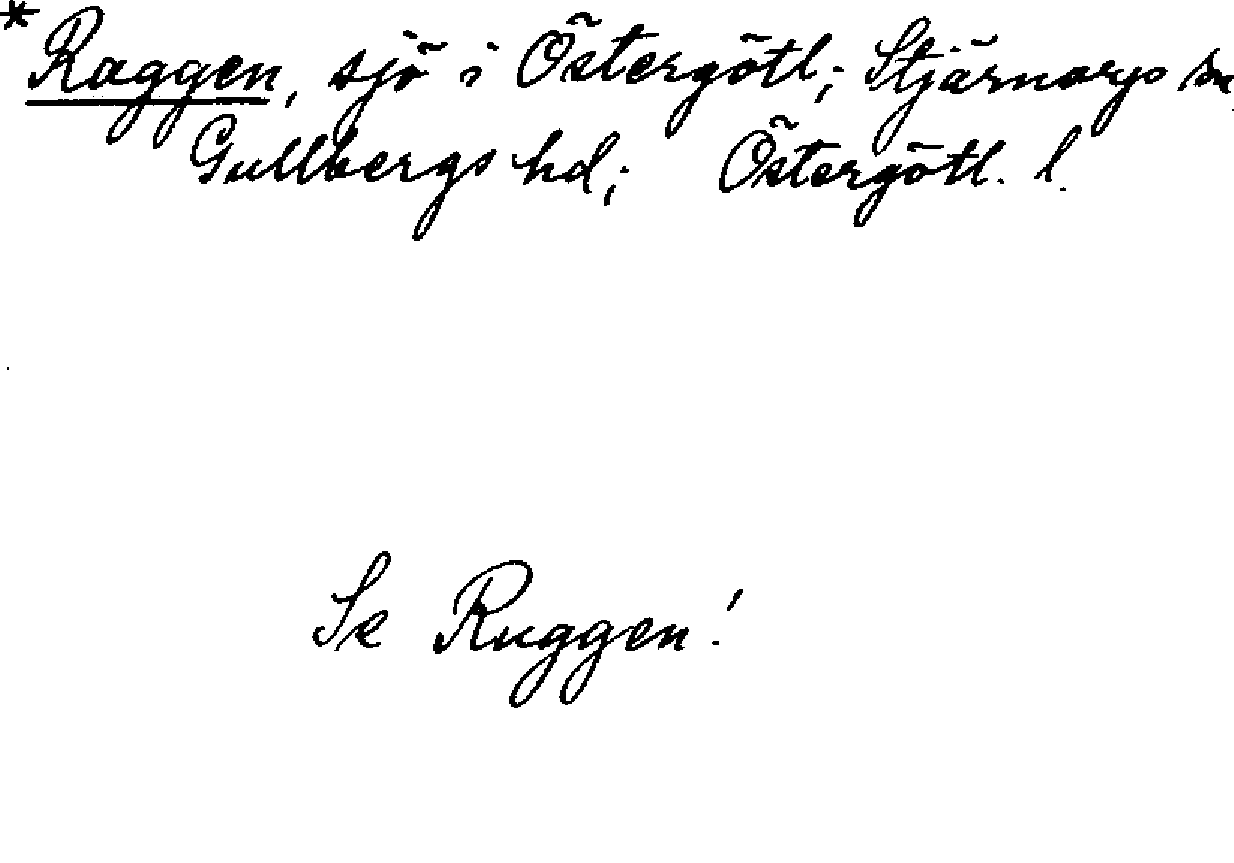 *Raggen, sjö i Östergötl; Stjärnorps sn,
Gullbergs hd; Östergötl. l.
Se Ruggen!